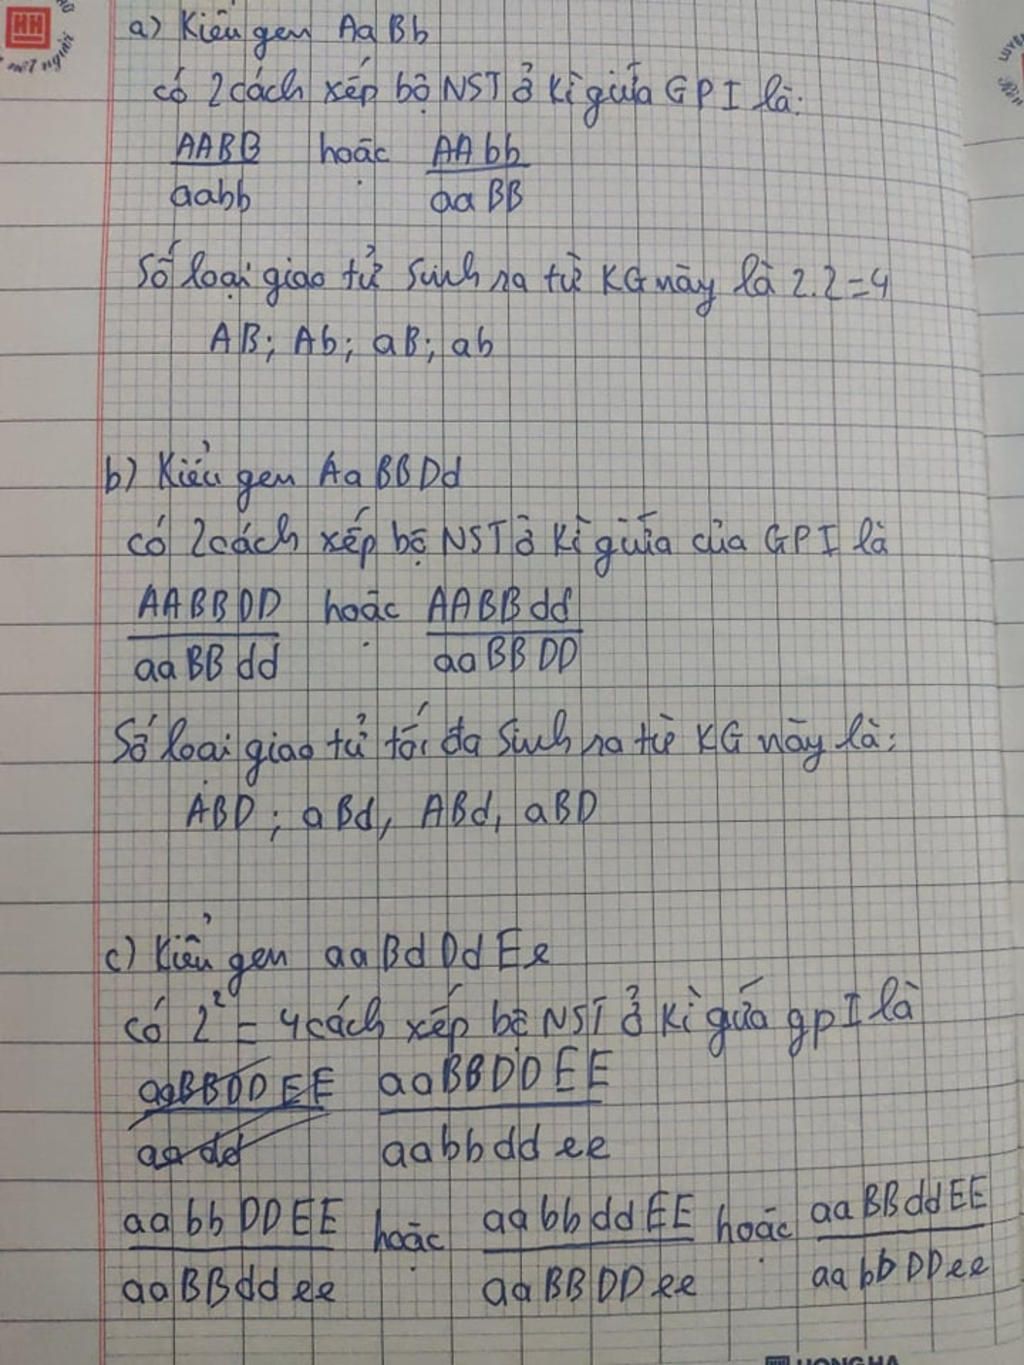 HH
một người
LUYỆN
a) Kiểu gen AaBb
có 2 cách xếp bộ NST ở Kì giữa GPI là:
AABB hoặc AAbb
aabb aaBB
Số loại giao tử sinh ra từ KG này là 2.2=4
AB; Ab; aB; ab
b) Kiểu gen AaBBDd
có 2 cách xếp bộ NST ở Kì giữa của GPI là
AABBDD hoặc AABBdd
aaBBdd aaBBDD
Số loại giao tử tối đa sinh ra từ KG này là:
ABD; aBd, ABd, aBD
c) Kiểu gen aaBdDdEe
có 2² = 4 cách xếp bộ NST ở Kì giữa gpI là
aaBBDDEE aaBBDDEE
aa dd aabbddee
aabbDDEE hoặc aabbddEE hoặc aaBBddEE
aaBBddee aaBBDDee aabbDDee
HONGHA